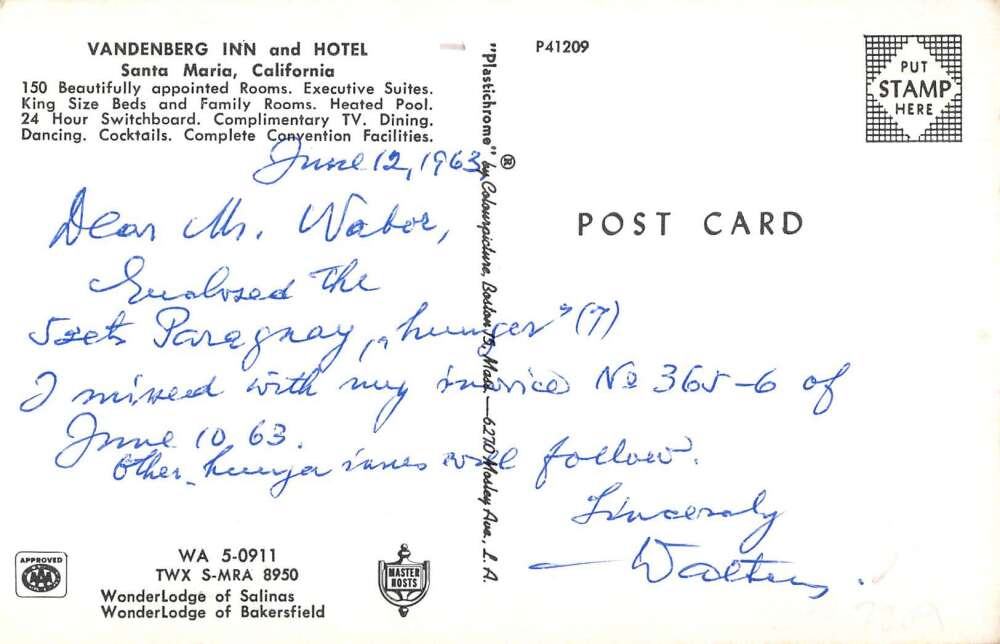 VANDENBERG INN and HOTEL
Santa Maria, California
150 Beautifully appointed Rooms. Executive Suites.
King Size Beds and Family Rooms. Heated Pool.
24 Hour Switchboard. Complimentary TV. Dining.
Dancing. Cocktails. Complete Convention Facilities.
June 12, 1963
Dear Mr. Nabor,
Enclosed the
5 sets Paraguay „hunger” (7)
I mixed with my invoice No 365-6 of
June 10, 63.
Other hunger issues will follow.
Sincerely
Walters.
WA 5-0911
TWX S-MRA 8950
WonderLodge of Salinas
WonderLodge of Bakersfield
APPROVED
AAA
MASTER
HOSTS
"Plastichrome"® by Colourpicture, Boston 15, Mass. — 6270 Mosley Ave., L. A.
P41209
PUT
STAMP
HERE
POST CARD